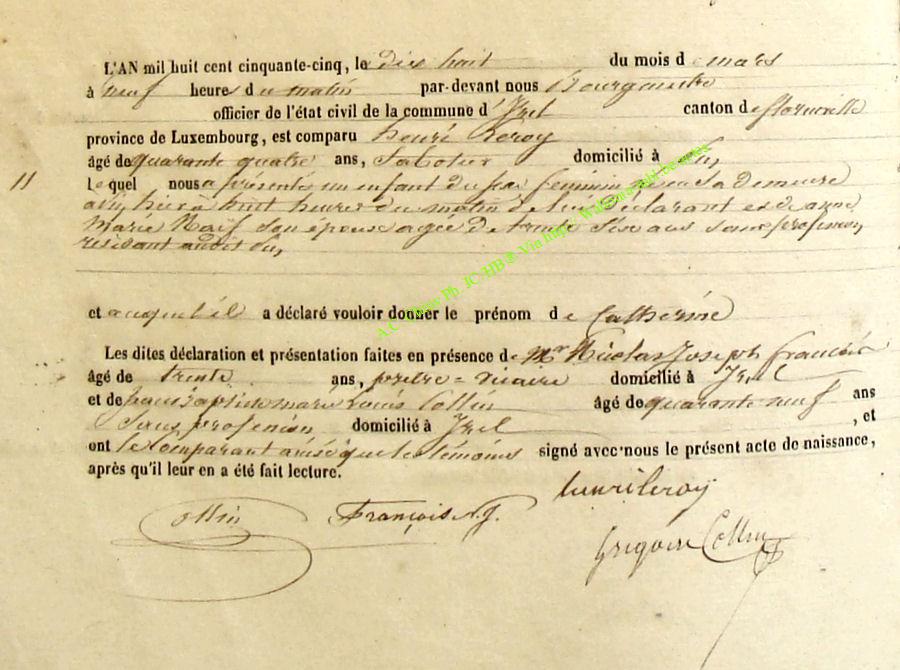 L'AN mil huit cent cinquante-cinq, le dix huit du mois de mars
à neuf heures du matin par-devant nous Bourgmestre
officier de l'état civil de la commune d'Izel canton de florenville
province de Luxembourg, est comparu henri Leroy
âgé de quarante quatre ans, Sabotier domicilié à
11 lequel nous a présenté un enfant du sexe féminin né en sa demeure
hier à huit heures du matin de lui déclarant et de anne
marie Naïf son épouse agée de trente six ans sans profession,
résidant audit
et auquel il a déclaré vouloir donner le prénom de Catherine
Les dites déclaration et présentation faites en présence de Mr Nicolas Joseph francois
âgé de trente ans, prêtre = vicaire domicilié à Izel
et de jean baptiste marie Louis Collin âgé de quarante neuf ans
Sans profession domicilié à Izel , et
ont le Comparant ainsi que les témoins signé avec nous le présent acte de naissance,
après qu'il leur en a été fait lecture.
henri leroy
Collin François N.J.
Grégoire Collin